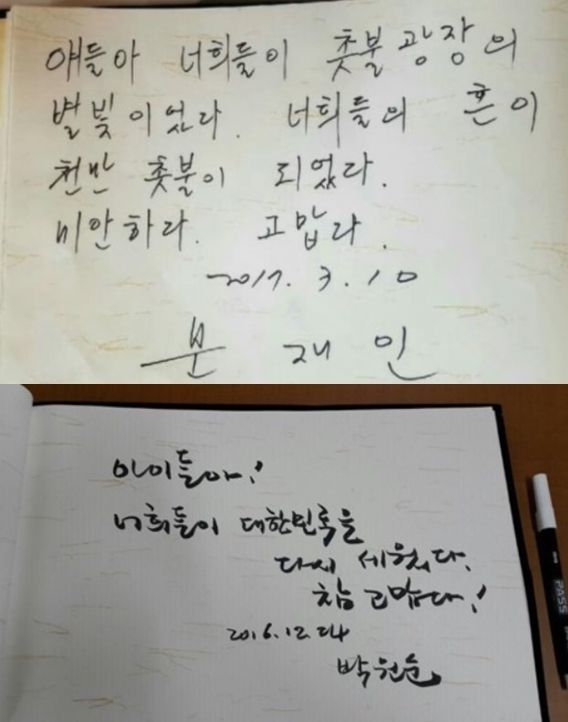 얘들아 너희들이 촛불광장의
별빛이었다. 너희들의 혼이
천만 촛불이 되었다.
미안하다. 고맙다.
2017. 3. 10
문 재 인
아이들아!
너희들이 대한민국을
다시 세웠다.
참 고맙다!
2016.12.24
박원순
PASS